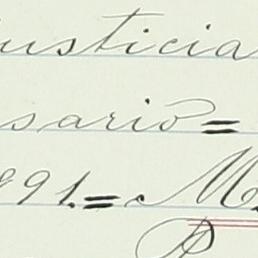 justicia
sario =
991. = M
P